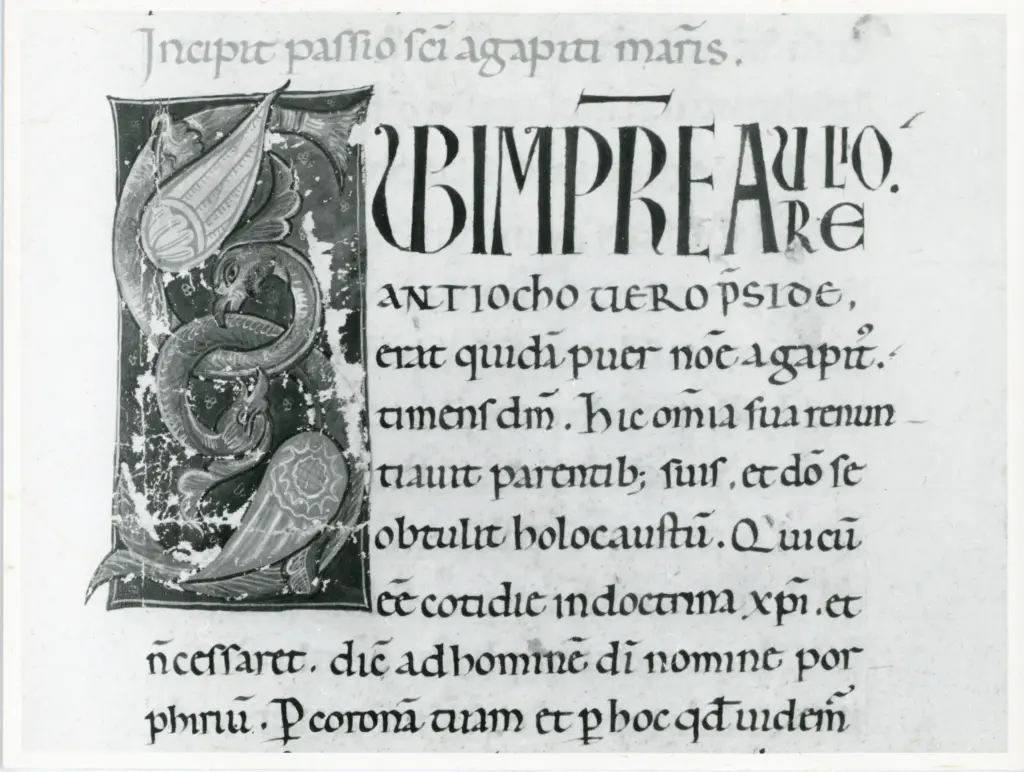 Incipit passio sc̄i agapiti mar̄is.
SUB IMP̄RE AULIO.
RE
ANTIOCHO UERO p̄SIDE,
erat quidā puer nōe agapit᷒.
timens dm̄. Hic om̄ia sua renun
tiauit parentib; suis, et dō se
obtulit holocaustū. Qui cū
eē̄ cotidie in doctrina xp̄i. et
n̄ cessaret. dic̄ ad hominē dī nomine por
phiriū. P̄ coronā tuam et p̱ hoc qd̄ uidem᷒